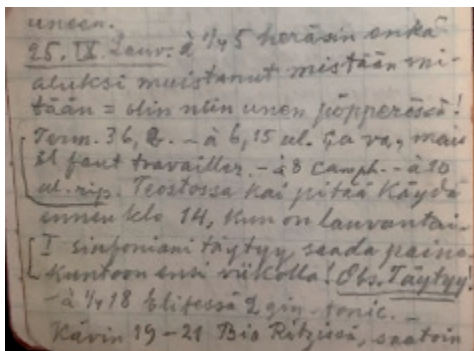 uneen.
25. IX. Lauv. à ¼5 heräsin enkä
aluksi muistanut mistään mi-
tään = olin niin unen pöpperössä!
Term. 36,2. – à 6,15 ul. Ça va, mais
il faut travailler. – à 8 camph. – à 10
ul. rip. Teostossa kai pitää käydä
ennen klo 14, kun on lauvantai.
I sinfoniani täytyy saada paino-
kuntoon ensi viikolla! Obs. Täytyy.
– à ¼18 Elitessä 2 gin-tonic. –
Kävin 19–21 Bio Ritzissä, saatoin